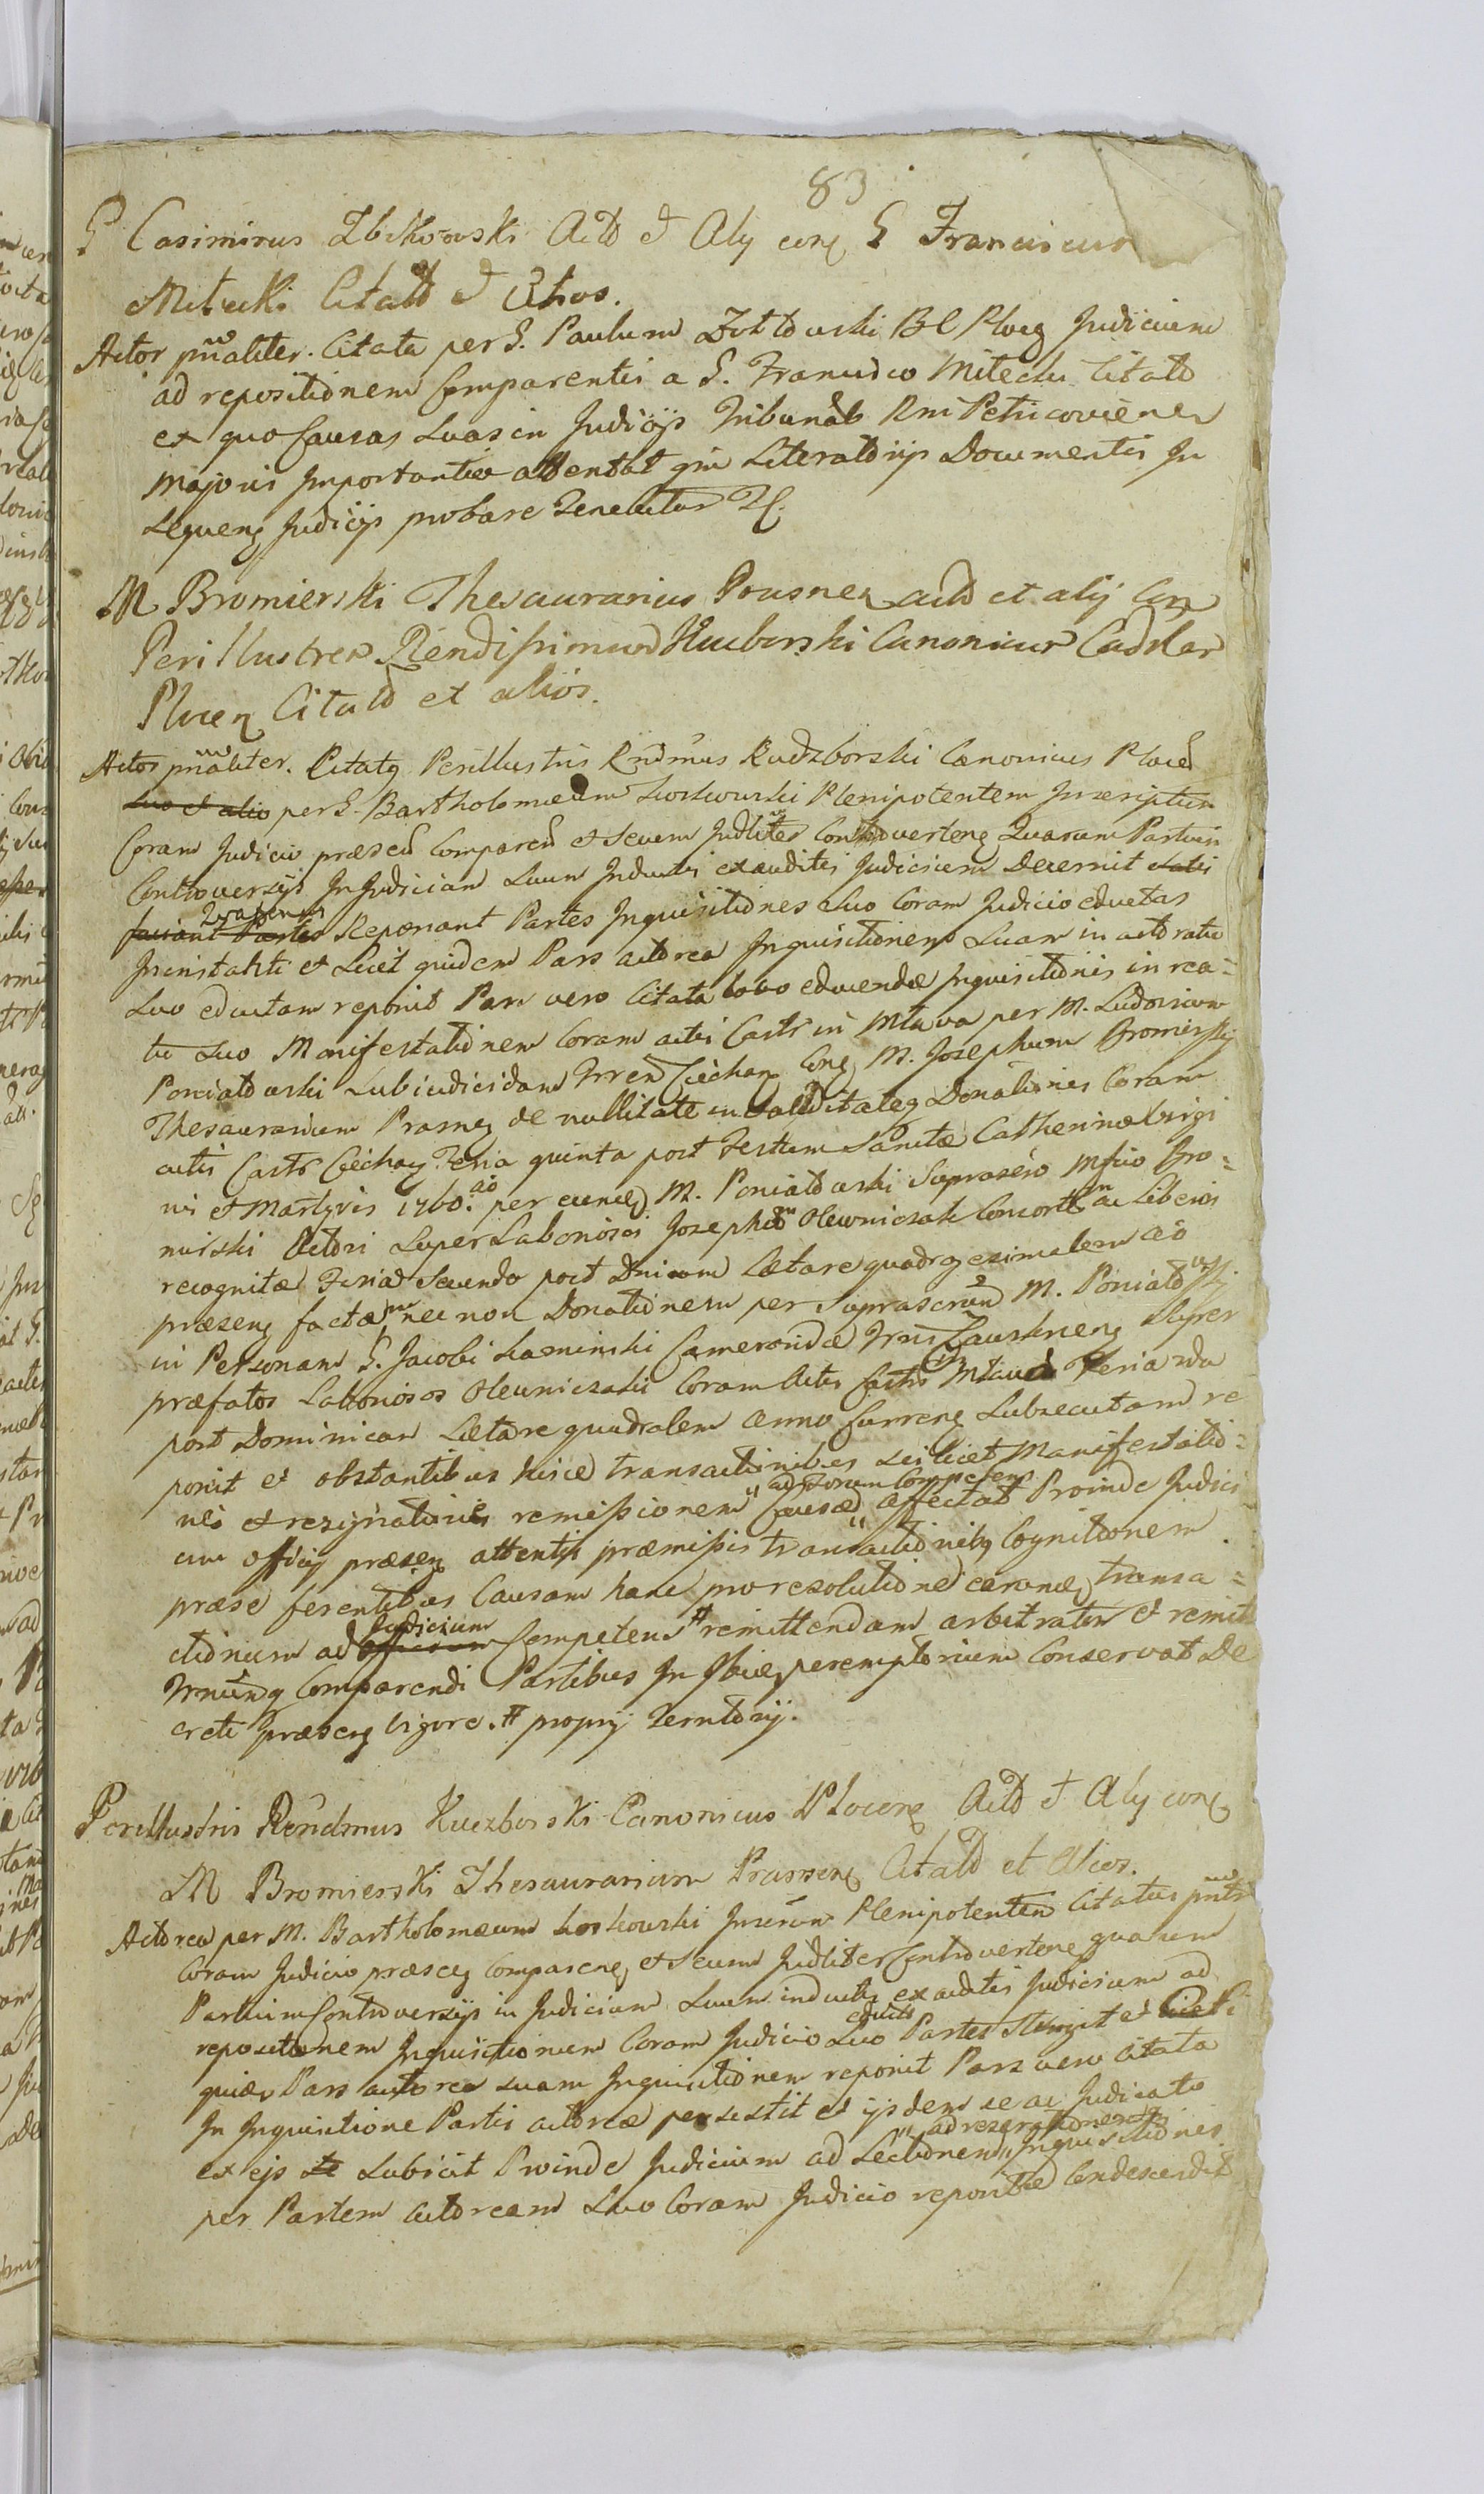 83
G Casimirus Zbikowski Actō et Alij conꝫ G Franciscum
Mitecki Citatō et Alios.
Actor pnāliter. Citata per G. Paulum Ploɕ Judicium
ad repositionem Comparentis a G. Francisco Mitecki Citatō
ex quo Causas suas in Judicijs Tribunal Rni Petricovien
majoris Importantiæ attentat qm Literatorijs Documentis In
sequenꝫ Judicijs probare Tenebitur
M Bromierski Thesaurarius Prasnen actō et alij Conꝫ
Perillustrem Rendissimum Kuczborski Canonicum Cadlem
Plocen Citatō et alios.
Actor pnāliter. Citatꝫ Perillustris Rndmus Kudzborski Canonicus Plocen
suo et alio per G. Bartholomæum Koskowski Plenipotentem Inscriptum
Coram Judicio præsen Comparen et secum Judliter Controvertenꝫ Quarum Partium
Controversijs In Judicium suum Inductis exauditis Judicium Decernit
faciant Partes Reponant Partes Inquisitiones suo Coram Judicio eductas
Ininstanti et Licet quidem Pars actorea Inquisitionem suam in actoratu
suo eductam reponit Pars vero Citata loco educendæ Inquisitionis in rea=
tu suo Manifestationem Coram actis Castr in Mlava per M. Ludovicum
Poniatowski Subiudicidam Trren Ciechan Conꝫ M. Josephum Bromirskij
Thesaurarium Prasnꝫ de nullitate invaliditateqꝫ Donationis Coram
actis Castr Ciechan Feria quinta post Festum Sanctæ Catherinæ Virgi
nis et Martyris 1760. aō per eundē M. Poniatowski Suprascro Mfico Bro=
mirski Actori super Laboriosis Josepho Olewniczak Consorte ac Liberis
recognitæ Feria Secunda post Dnicam Lætare quadragesimalem aō
præsenꝫ factam nec non Donationem per Suprascrum M. Poniatowskij
in Personam G. Jacobi Kaminski Cameronidæ Trris Zauskrnenꝫ super
præfatos Laboriosos Olewniczaki Coram Actis Castr in Mlava Feria 2da
post Dominicam Lætare quadralem anno Currenꝫ Subsecutam re
ponit et obstantibus hisce transactionibus scilicet Manifestatio=
nis et resignationis remissionem Causæ " ad Forum Competens " affectat Proinde Judici
um officij præsenꝫ attentis præmissis transactionibꝫ Cognitionem
præse ferentibus Causam hanc pro resolutione earundē transa=
ctionum ad officium Judicium Competens # remittendam arbitratur et remittit
Trmumqꝫ Comparendi Partibus In Ibidē peremptorium Conservat De
creti præsenꝫ vigore. # proprij Territorij.
Perillustris Rendmus Kuczborski Canonicus Plocenꝫ Actō et Alij conꝫ
M Bromierski Thesaurarium Prasnenꝫ Citatō et Alios.
Actorea per M. Bartholomæum Koskowski Inscrum Plenipotentem Citatus pntr
Coram Judicio præsenꝫ Comparenꝫ et secum Judliter Controvertenꝫ quarum
Partium Controversijs in Judicium suum inductis exauditis Judicium ad
repositionem Inquisitionum Coram Judicio suo educts Partes stringit et
quia Pars actorea suam Inquisitionem reponit Pars vero Citata
In Inquisitione Partis actoreæ persistit et ijsdem se ac Judicato
ex ejs te subicit Proinde Judicium ad Lectionem " ad reserationem " Inquisitionis
per Partem actoream suo Coram Judicio repositæ Condescendit